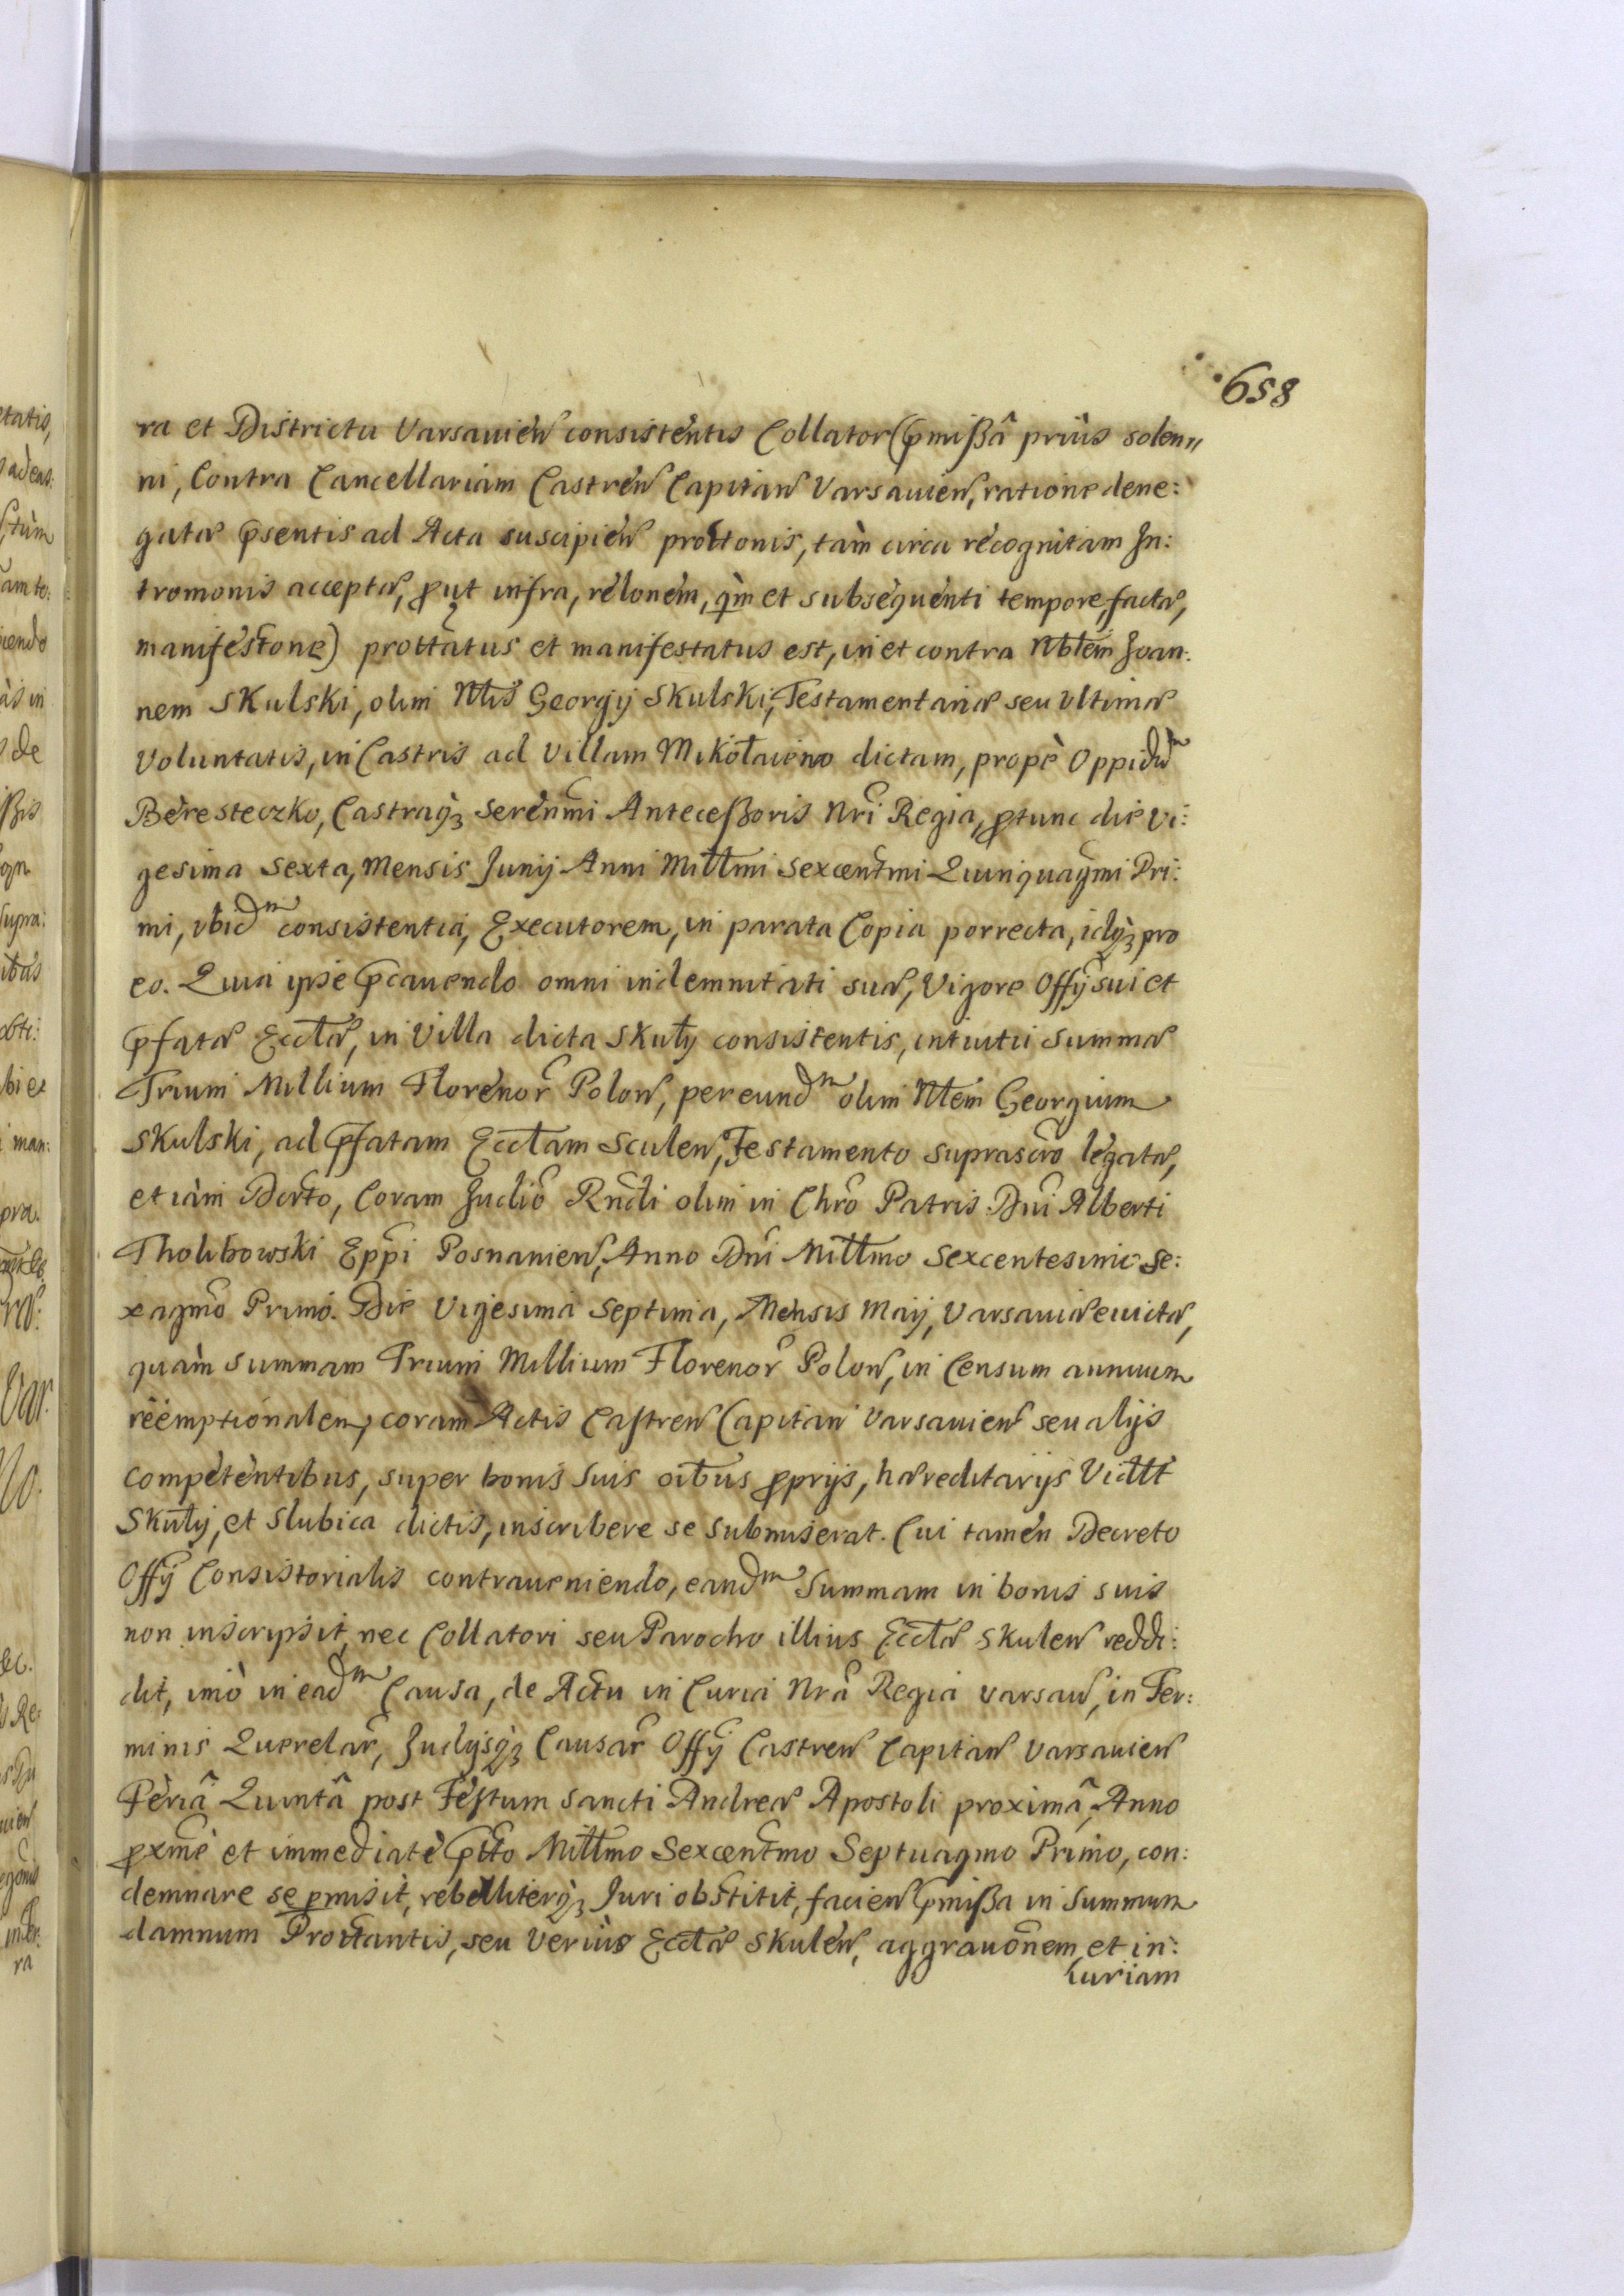 658
ra et Districtu Varsavien consistentis Collator (pmißâ priùs solen„
ni, Contra Cancellariam Castren Capitan Varsavien, ratione dene:
gatæ psentis ad Acta suscipien prottonis, tàm circa recognitam In:
tromonis acceptæ, put infra, relonem, qm et subsequenti tempore factæ,
manifestone) prottatus et manifestatus est, in et contra Nbtem Joan:
nem Skulski, olim Ntis Georgij Skulski, Testamentariæ seu Ultimæ
Voluntatis, in Castris ad Villam Mikołaiewo dictam, propè Oppidum
Beresteczko, Castraqz Serenmi Anteceßoris Nri Regia, ptunc die Vi:
gesima Sexta, Mensis Junij Anni Mittmi Sexcentmi Quinquagmi Pri:
mi, ibidm consistentia, Executorem, in parata Copia porrecta, idqz pro
eo. Quia ipse pcavendo omni indemnitati suæ, Vigore Offij sui et
pfatæ Ecctæ, in Villa dicta Skuły consistentis, intuitu Summæ
Trium Millium Florenor Polon, per eundm olim Ntem Georgium
Skulski, ad pfatam Ecctam Sculen, Testamento suprascro legatæ,
etiàm Derto, Coram Judio Rndi olim in Chro Patris Dni Alberti
Tholibowski Eppi Posnanien, Anno Dni Mittmo Sexcentesimo Se:
xagmo Primo. Die Vigesima Septima, Mensis Maij, Varsaviæ evictæ,
quàm summam Trium Millium Florenor Polon, in Censum annuum
reemptionalem, coram Actis Castren Capitan Varsavien seu alijs
competentibus, super bonis suis oibus pprijs, hæreditarijs Vidtt
Skuły, et Slubica dictis, inscribere se submiserat. Cui tamen Decreto
Offij Consistorialis contraveniendo, eandm Summam in bonis suis
non inscripsit, nec Collatori seu Parocho illius Ecctæ Skulen reddi:
dit, imò in eadm Causa, de Actu in Curia Nra Regia Varsav, in Ter:
minis Querelar, Judijsqz Causar Offij Castren Capitan Varsavien
Feriâ Quintâ post Festum Sancti Andreæ Apostoli proximâ, Anno
pxmè et immediatè ptto Mittmo Sexcentmo Septuagmo Primo, con:
demnare se pmisit, rebelliterqz Juri obstitit, facien pmißa in Summum
damnum Prottantis, seu veriùs Ecctæ Skulen, aggravonem et in:
iuriam